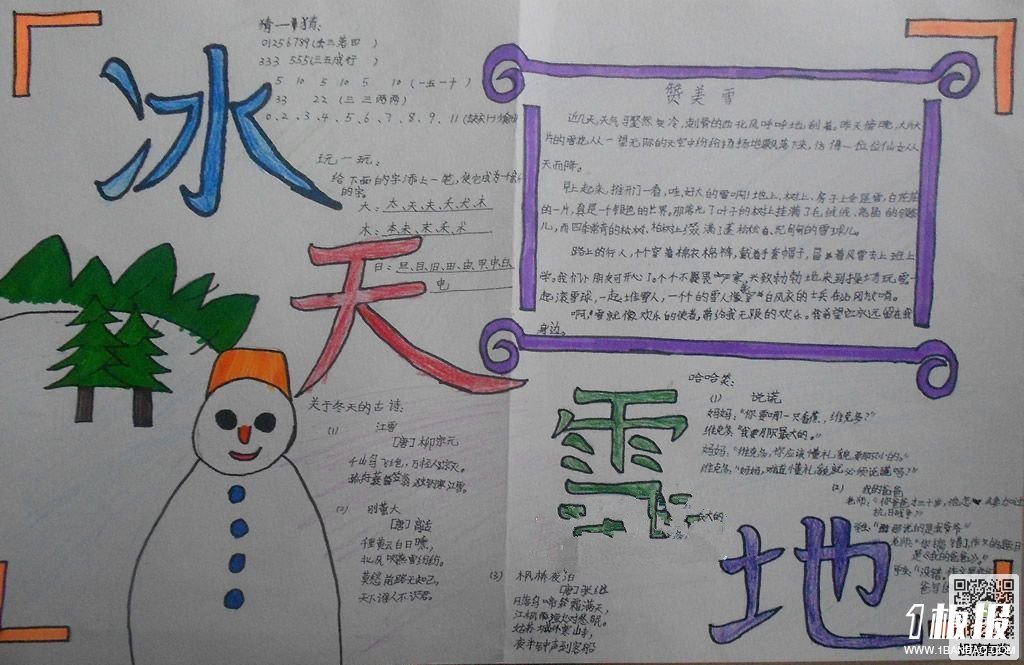 猜一猜:
01256789(去三落四 )
333 555(三五成行 )
5 10 5 10 5 10 (一五一十 )
33 22 (三三两两)
0、2、3、4、5、6、7、8、9、11
冰
玩一玩:
给下面的字添上一笔,使它成为
的字。
大:太、天、夫、夭、犬、木
木:本、未、末、禾、术
日:旦、目、旧、田、由、甲、申、白、
电
天
赞美雪
近几天,天气马骤然变冷,刺骨的西北风呼呼地刮着。昨天傍晚,大片大
片的雪花从一望无际的天空中纷纷扬扬地飘落下来,仿佛一位位仙女从
天而降。
早上起来,推开门一看,哇,好大的雪啊!地上、树上、房子上全是雪,白茫茫
的一片,真是一个银色的世界。那落光了叶子的树上挂满了毛绒绒、亮晶的银条
儿,而四季常青的松树、柏树上缀满了蓬松松的雪球儿。
路上的行人,个个穿着棉衣棉裤,戴着手套帽子,冒着风雪去上班上
学。我们小朋友可开心了。个个不畏严寒,兴致勃勃地来到操场玩雪,一
起滚雪球,一起堆雪人,一个个的雪人像穿白风衣的士兵在站岗放哨。
啊!雪就像欢乐的使者,带给我无限的欢乐。我希望它永远留在我
身边。
关于冬天的古诗:
(1) 江雪
[唐]柳宗元
千山鸟飞绝,万径人踪灭。
孤舟蓑笠翁,独钓寒江雪。
(2) 别董大
[唐]高适
千里黄云白日曛,
北风吹雁雪纷纷。
莫愁前路无知己,
天下谁人不识君。
(3) 枫桥夜泊
[唐]张继
月落乌啼霜满天,
江枫渔火对愁眠。
姑苏城外寒山寺,
夜半钟声到客船
雪
哈哈笑:
(1) 说谎
妈妈:“你要哪一只香蕉,维克多?”
维克多:“我要那只最大的。”
妈妈:“维克多,你应该懂礼貌,要那只小的。”
维克多:“妈妈,难道懂礼貌就必须说谎吗?”
最大的
(2) 我的爸爸
老师:“你爸爸才三十岁,他怎
抗日战争?”
老师:“你搞错了,作文的题目
是《我的爸爸》。”
学生:“没错。
地
1板报
WWW.1BANBAO.COM